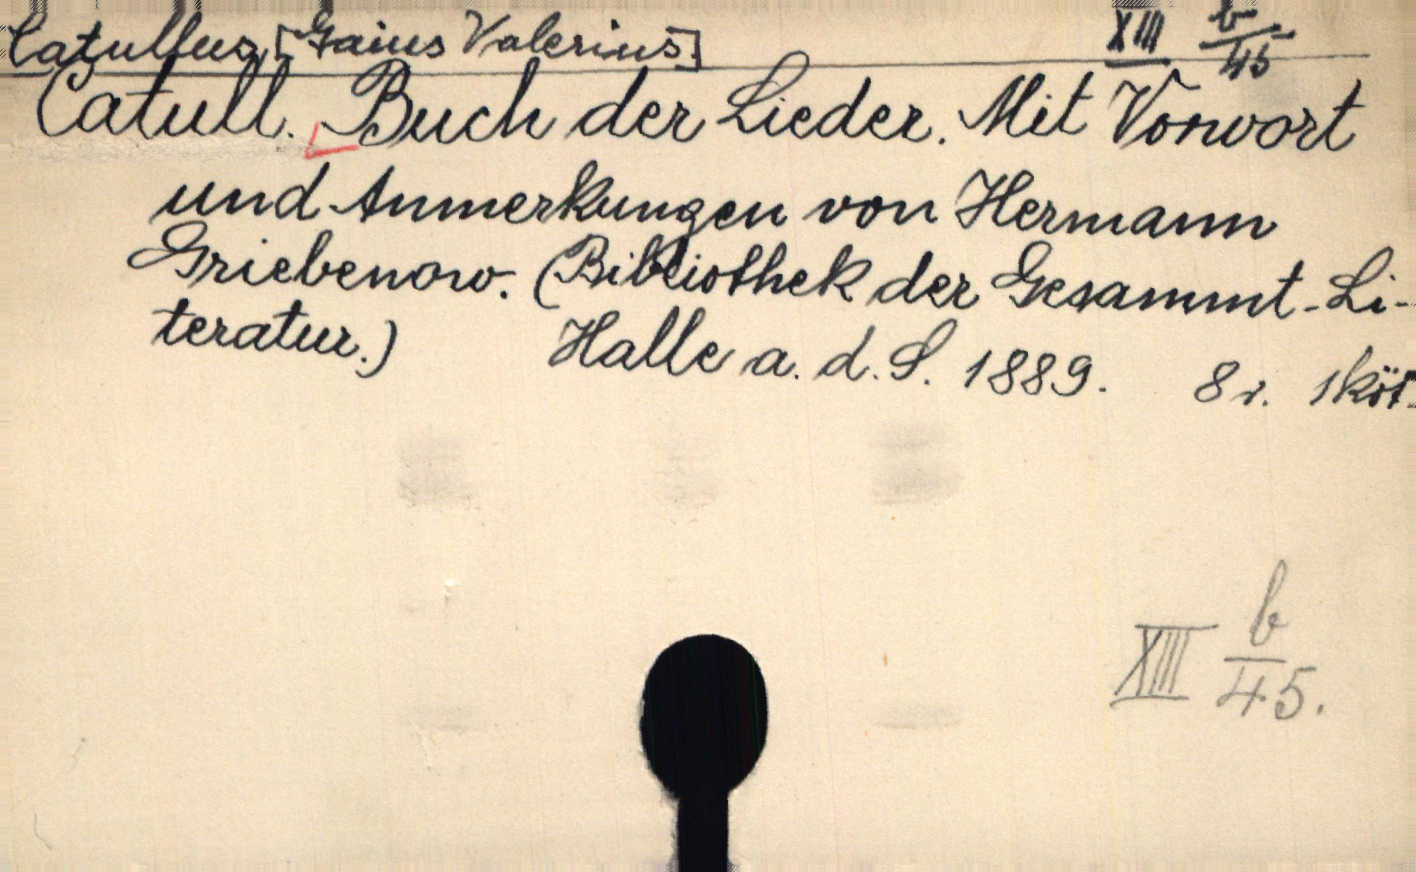 Catullus, [Gaius Valerius.] XIII b/45
Catull. Buch der Lieder. Mit Vorwort
und Anmerkungen von Hermann
Griebenow. (Bibliothek der Gesammt-Li-
teratur.) Halle a. d. S. 1889. 8 r. 1 köt.
XIII b/45.